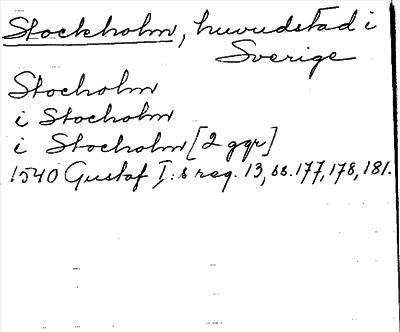 Stockholm, huvudstad i
Sverige
Stocholm
i Stocholm
i Stocholm [2 ggr]
1540 Gustaf I:s reg. 13, ss. 177, 178, 181.